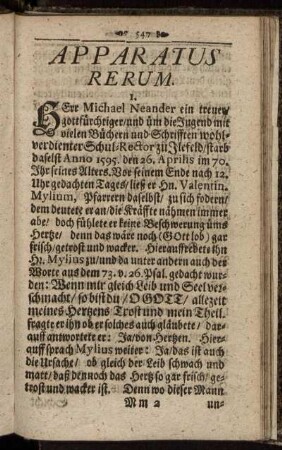 547
APPARATUS
RERUM.
I.
HErr Michael Neander ein treuer/
gottfürchtiger/und üm die Jugend mit
vielen Büchern und Schrifften wohl-
verdienter Schul-Rector zu Jlefeld/starb
daselst Anno 1595. den 26. Aprilis im 70.
Jhr seines Alters. Vor seinem Ende nach 12.
Uhr gedachten Tages/ ließ er Hn. Valentin.
Mylium, Pfarrern daselbst/ zu sich fodern/
dem deutete er an/die Kräffte nähmen immer
abe/ doch fühlete er keine Beschwerung üms
Hertze/ denn das wäre noch (Gott lob) gar
frisch/getrost und wacker. Hierauff redete ihn
Hr. Mylius zu/und da unter andern auch der
Worte aus dem 73. v. 26. Psal. gedacht wur-
den: Wenn mir gleich Leib und Seel ver-
schmacht/ so bist du/ O GOTT/ allezeit
meines Hertzens Trost und mein Theil.
fragte er ihn ob er solches auch gläubete/ dar-
auff antwortete er: Ja/von Hertzen. Hier-
auff sprach Mylius weiter: Ja/das ist auch
die Ursache/ ob gleich der Leib schwach und
matt/ daß dennoch das Hertz so gar frisch/ ge-
trost und wacker ist. Denn wo dieser Mann
M m 2 un-